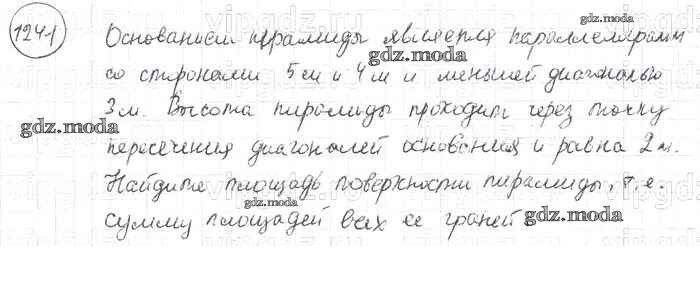 1241
Основанием пирамиды является параллелограмм
со сторонами 5см и 4м и меньшей диагональю
3м. Высота пирамиды проходит через точку
пересечения диагоналей основания и равна 2м.
Найдите площадь поверхности пирамиды, т.е.
сумму площадей всех ее граней
gdz.moda
gdz.moda
gdz.moda
gdz.moda
gdz.moda